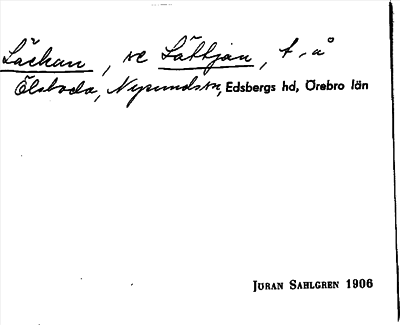 Läckan, se Lättjan, t. å
Elsboda, Nysunds sn, Edsbergs hd, Örebro län
JÖRAN SAHLGREN 1906